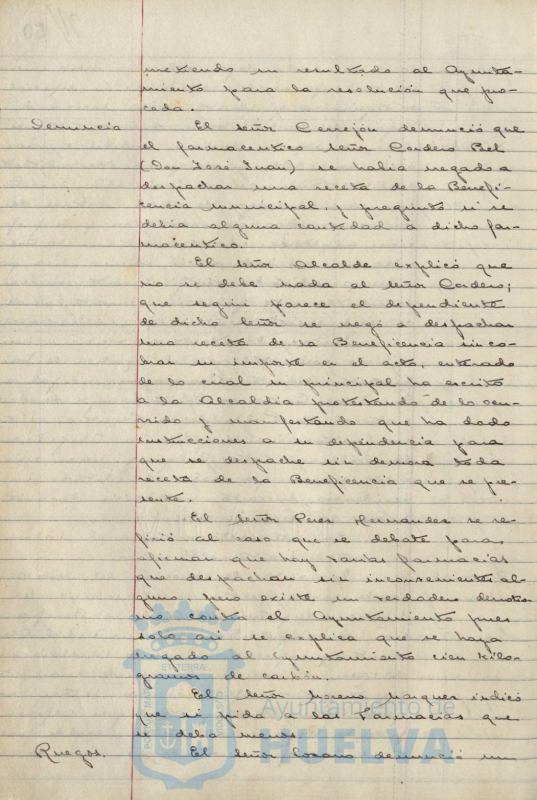 metiendo su resultado al Ayunta-
miento para la resolución que pro-
ceda.
Denuncia El señor Cerrejón denunció que
el farmaceutico señor Cordero Bel
(Don José Juan) se habia negado a
despachar una receta de la Benefi-
cencia municipal, y preguntó si se
debia alguna cantidad a dicho far-
maceutico.
El señor Alcalde explicó que
no se debe nada al señor Cordero;
que segun parece el dependiente
de dicho señor se negó a despachar
una receta de la Beneficencia sin co-
brar su importe en el acto, enterado
de lo cual su principal ha escrito
a la Alcaldia protestando de lo ocu-
rrido y manifestando que ha dado
instrucciones a su dependencia para
que se despache sin demora toda
receta de la Beneficencia que se pre-
sente.
El señor Perez Hernandez se re-
firió al caso que se debate para
afirmar que hay varias farmacias
que despachan sin inconveniente al-
guno, pero existe un verdadero
contra el Ayuntamiento pues
solo asi se explica que se haya
negado al Ayuntamiento cien kilo-
gramos de carbón.
El señor Moreno Marquez indicó
que se pida a las Farmacias que
se deba menos.
Ruegos. El señor Lozano denunció un
Ayuntamiento de
HUELVA